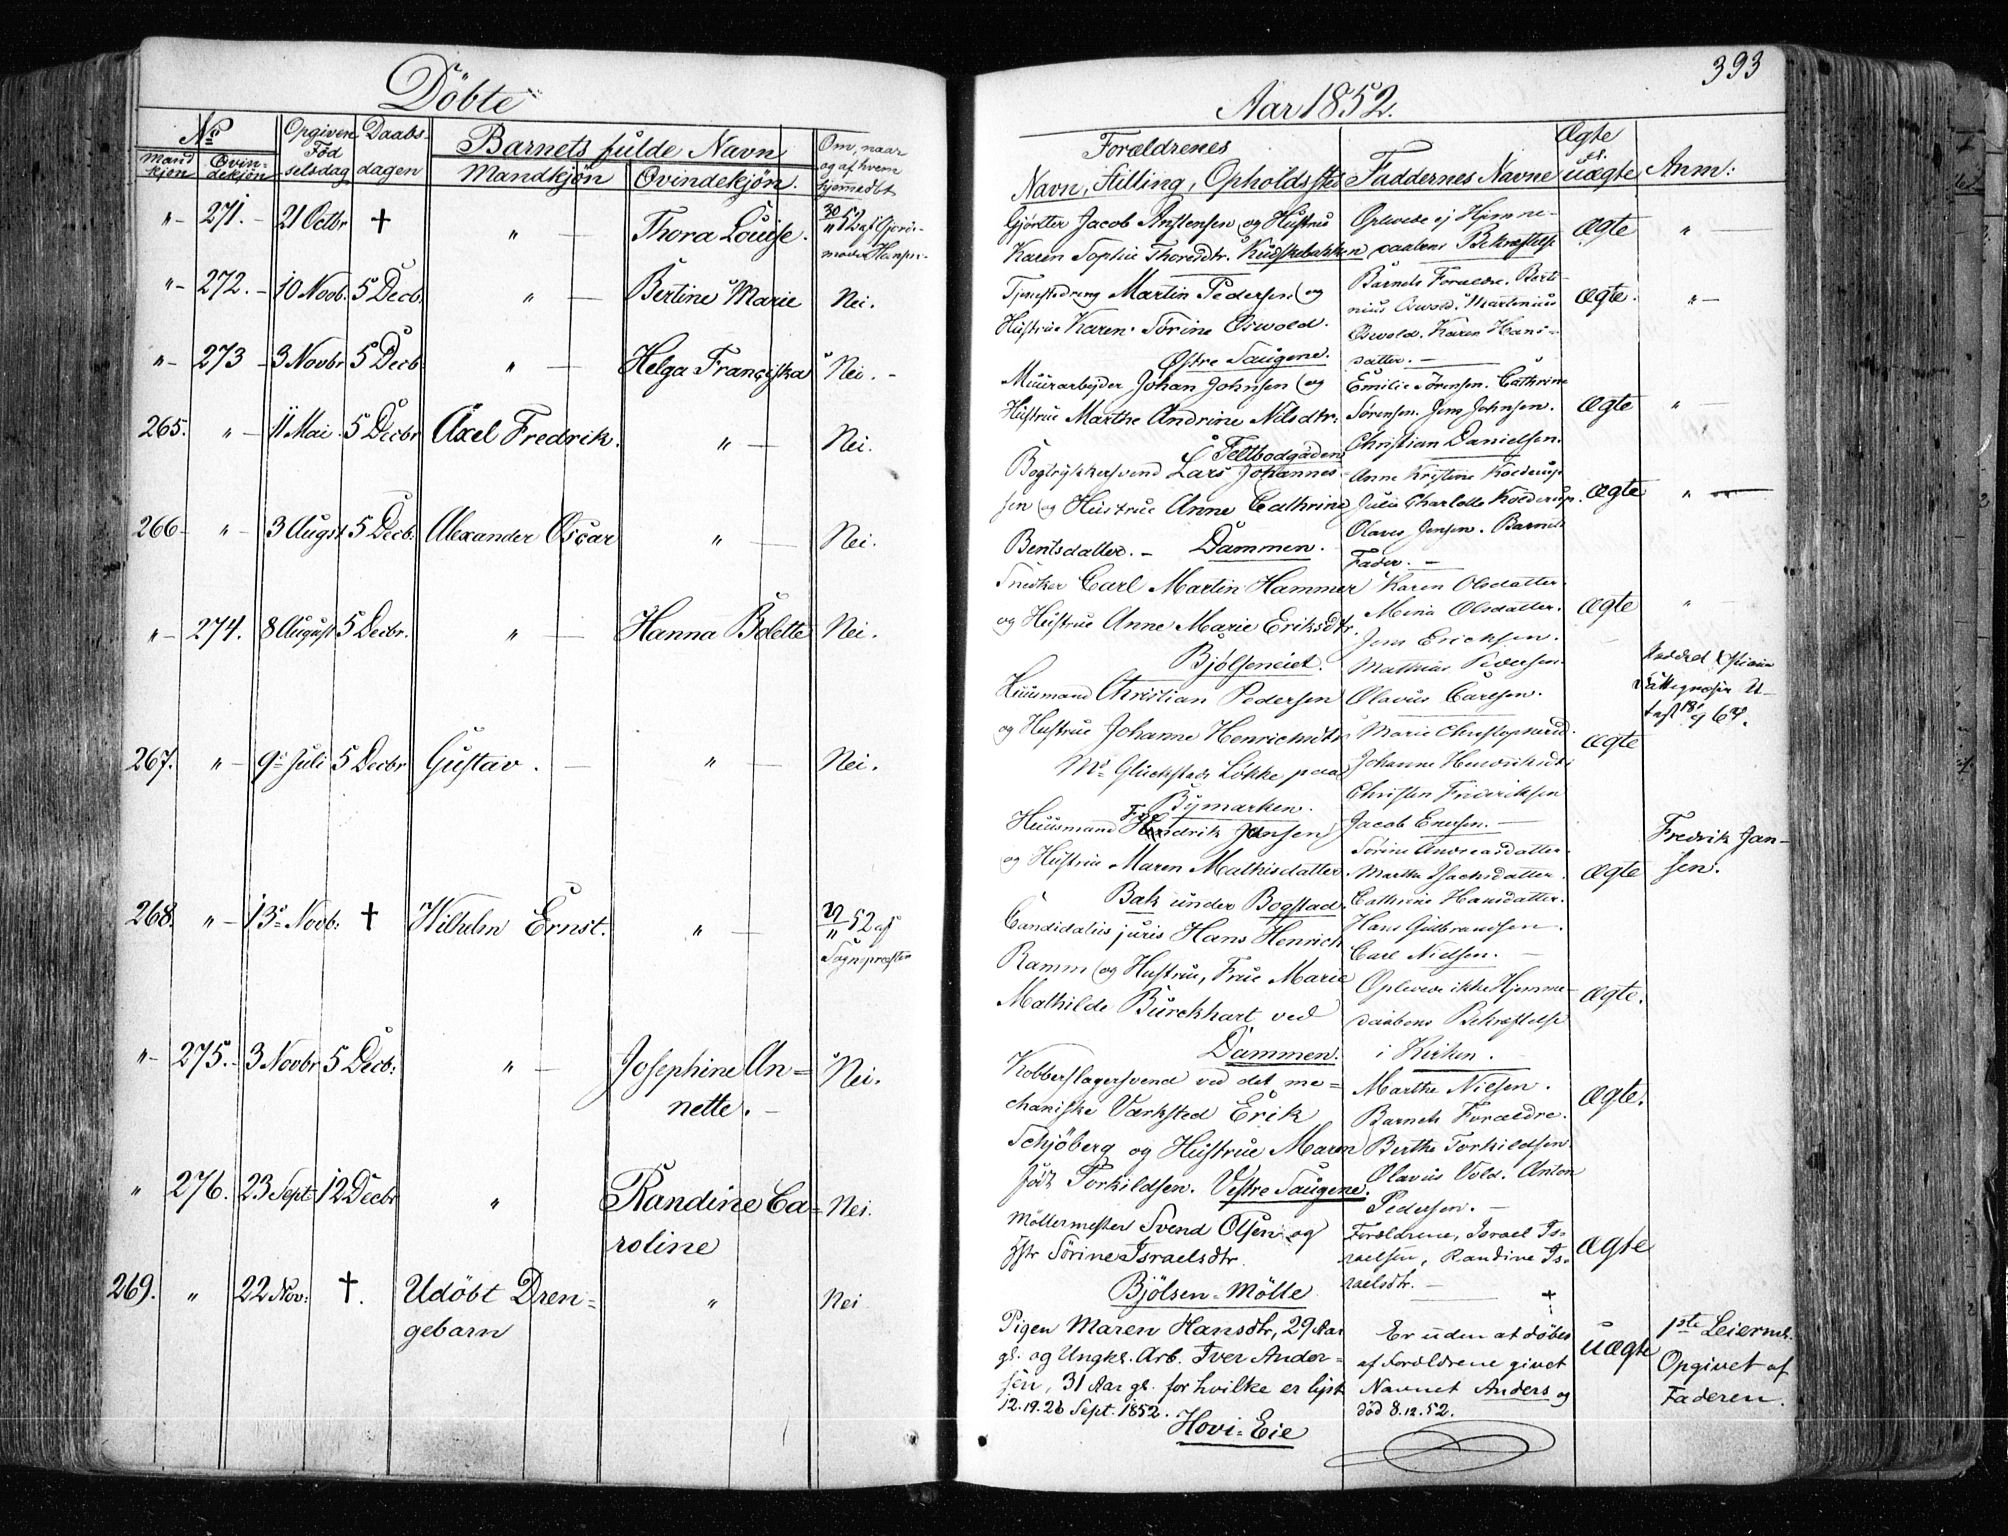 Döbte
No
Mand
kjön
Qvin-
dekjön
Opgiven
Föd
selsdag
Daabs-
dagen
Barnets fulde Navn
Mandkjön
Qvindekjön.
Om, naar
og af hvem
hjemedöbt
" 271. 21 Octbr † " Thora Louise. 30/11 52 af Gjorde-
moder Hansen
" 272. 10 Novb. 5 Decb. " Bertine Marie Nei.
" 273 3 Novbr 5 Decb " Helga Franciska Nei.
265. " 11 Mai 5 Decbr Axel Fredrik. " Nei.
266 " 3 Augst 5 Decb. Alexander Oscar " Nei.
" 274. 8 August 5 Decbr. " Hanna Bolette Nei.
267. " 9 Juli 5 Decbr Gustav. " Nei.
268. " 13 Novb: † Wilhelm Ernst. " 52 af
Sognepræsten
" 275. 3 Novbr 5 Decb: " Josephine An-
nette. Nei.
" 276. 23 Sept 12 Decbr " Randine Ca-
roline Nei.
269. " 22 Nov: †. Udöbt Dren-
gebarn " Nei
393
Aar 1852.
Forældrenes
Navn, Stilling, Opholdssted
Faddernes Navne
Ægte
el.
uægte
Anm:
Gjörtler Jacob Anstensen og Hustrue
Karen Sophie Thoresdtr. Kudskebakken
Oplevede ej Hjemme-
daabens Bekræftelse
Ægte "
Tjenestedreng Martin Pedersen og
Hustrue Karen Sörine Oswold.
Östre Saugene.
Barnets Forældre. Berti-
nius Oswold. Martinius
Oswold. Karen Hans-
datter.
Ægte. "
Muurarbejder Johan Johnsen og
Hustrue Marthe Andrine Nilsdtr.
Feltbodgaden
Emilie Sörensen. Cathrine
Sörensen. Jens Johnsen.
Christian Danielsen.
Ægte "
Bogtrykkersvend Lars Johannes-
sen og Hustrue Anne Cathrine
Bentsdatter. Dammen.
Anne Kristine Kolderup
Julie Charlotte Kolderup.
Olaves Jensen. Barnets
Fader.
Ægte "
Snedker Carl Martin Hammer
og Hustrue Anne Marie Eriksdtr.
Bjölseneiet.
Karen Olsdatter
Mina Olsdatter.
Jens Ericksen.
Mathias Pedersen
Olavus Carlsen.
Ægte "
Huusmand Christian Pedersen
og Hustrue Johanne Henrichsdtr
Mr Glückstads Lökke paa
Bymarken.
Marie Christophersd.
Johanne Hendriksd:
Christen Frideriksen
Jacob Enersen.
Ægte
Huusmand Fredrik Jansen
og Hustrue Maren Mathisdatter
Bak under Bogstad
Sörine Andreasdatter.
Marthe Isachsdatter.
Cathrine Hansdatter.
Hans Gulbrandsen.
Carl Nielsen.
Ægte
Fredrik Jan-
sen.
Candidatus juris Hans Henrich
Ramm og Hustrue, Frue Marie
Mathilde Burckhart ved
Dammen.
Oplevede ikke Hjemme-
daabens Bekræftelse
i Kirken.
Ægte.
Kobberslagersvend ved det me-
chaniske Værksted Erik
Schjöberg og Hustrue Maren
Torkildsen. Vestre Saugene.
Marthe Nielsen.
Barnets Forældre.
Berthe Torkildsen
Olavus Vold. Anton
Pedersen.
Ægte.
Möllermester Svend Olsen og
Hstr Sörine Israelsdtr.
Bjölsen-Mölle
Forældrene, Israel Is-
raelsen, Randine Is-
raelsdtr.
Ægte
Pigen Maren Hansdtr, 29 Aar
gl. og Ungkl. Arb. Iver Ander-
sen, 31 Aar gl. for hvilke er lyst
12.19.26 Sept. 1852.
Hovi-Eie
†
Er uden at döbes
af Forældrene givet
Navnet Anders og
död 8.12.52.
uægte
1ste Leierm.
Opgivet af
Faderen.